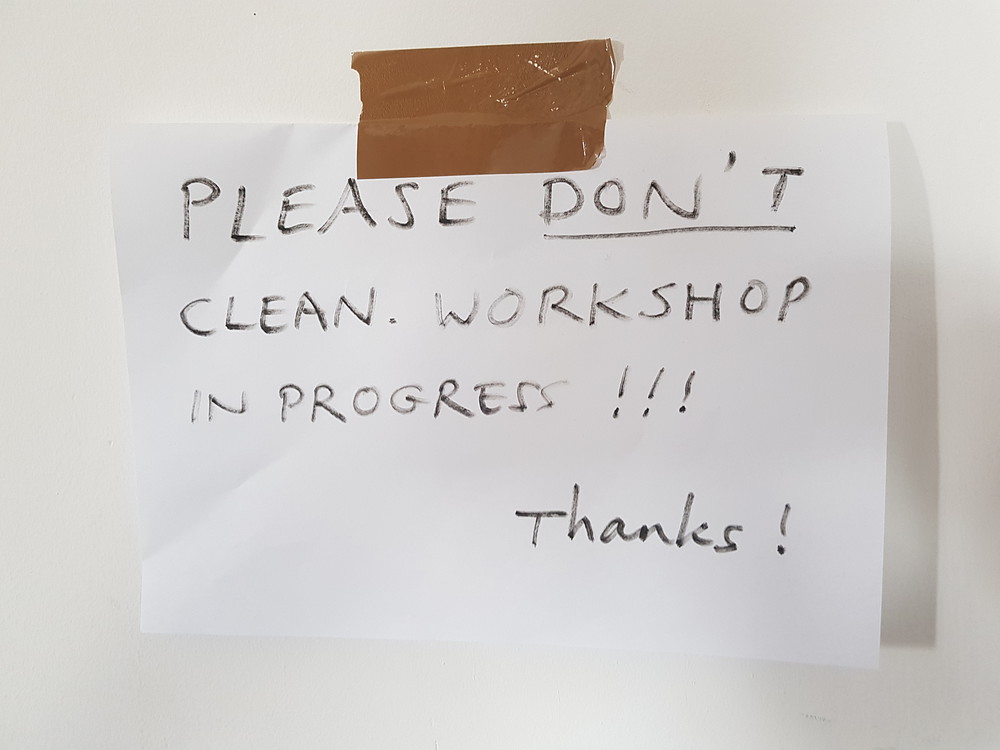 PLEASE DON'T
CLEAN. WORKSHOP
IN PROGRESS !!!
Thanks !